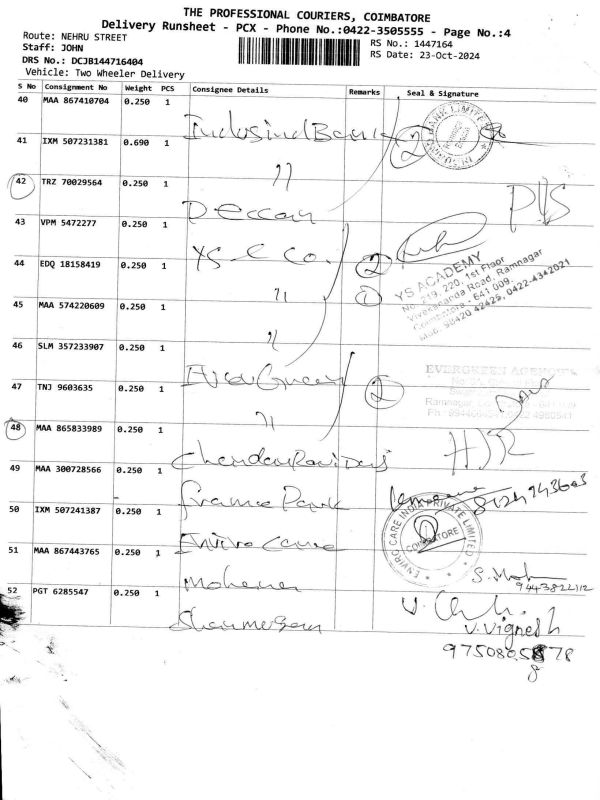 THE PROFESSIONAL COURIERS, COIMBATORE
Delivery Runsheet - PCX - Phone No.:0422-3505555 - Page No.:4
Route: NEHRU STREET
Staff: JOHN
DRS No.: DCJB144716404
Vehicle: Two Wheeler Delivery
RS No.: 1447164
RS Date: 23-Oct-2024
S No Consignment No Weight PCS Consignee Details Remarks Seal & Signature
40 MAA 867410704 0.250 1 Indusind Bank 2
41 IXM 507231381 0.690 1 "
42 TRZ 70029564 0.250 1 Deccan
43 VPM 5472277 0.250 1 YS & Co. 2
44 EDQ 18158419 0.250 1 " 1
45 MAA 574220609 0.250 1 "
46 SLM 357233907 0.250 1 Ever Green 2
47 TNJ 9603635 0.250 1 "
48 MAA 865833989 0.250 1
49 MAA 300728566 0.250 1
50 IXM 507241387 0.250 1 Enviro Care
51 MAA 867443765 0.250 1 Mohana
52 PGT 6285547 0.250 1
BANK LIMITED
YS ACADEMY
No. 219, 220, 1st Floor
Vivekananda Road, Ramnagar
Coimbatore - 641 009.
Mob: 90420 42425, 0422-4342021
EVERGREEN
ENVIRO CARE INDIA PRIVATE LIMITED
COIMBATORE
9443822112
V. Vignesh